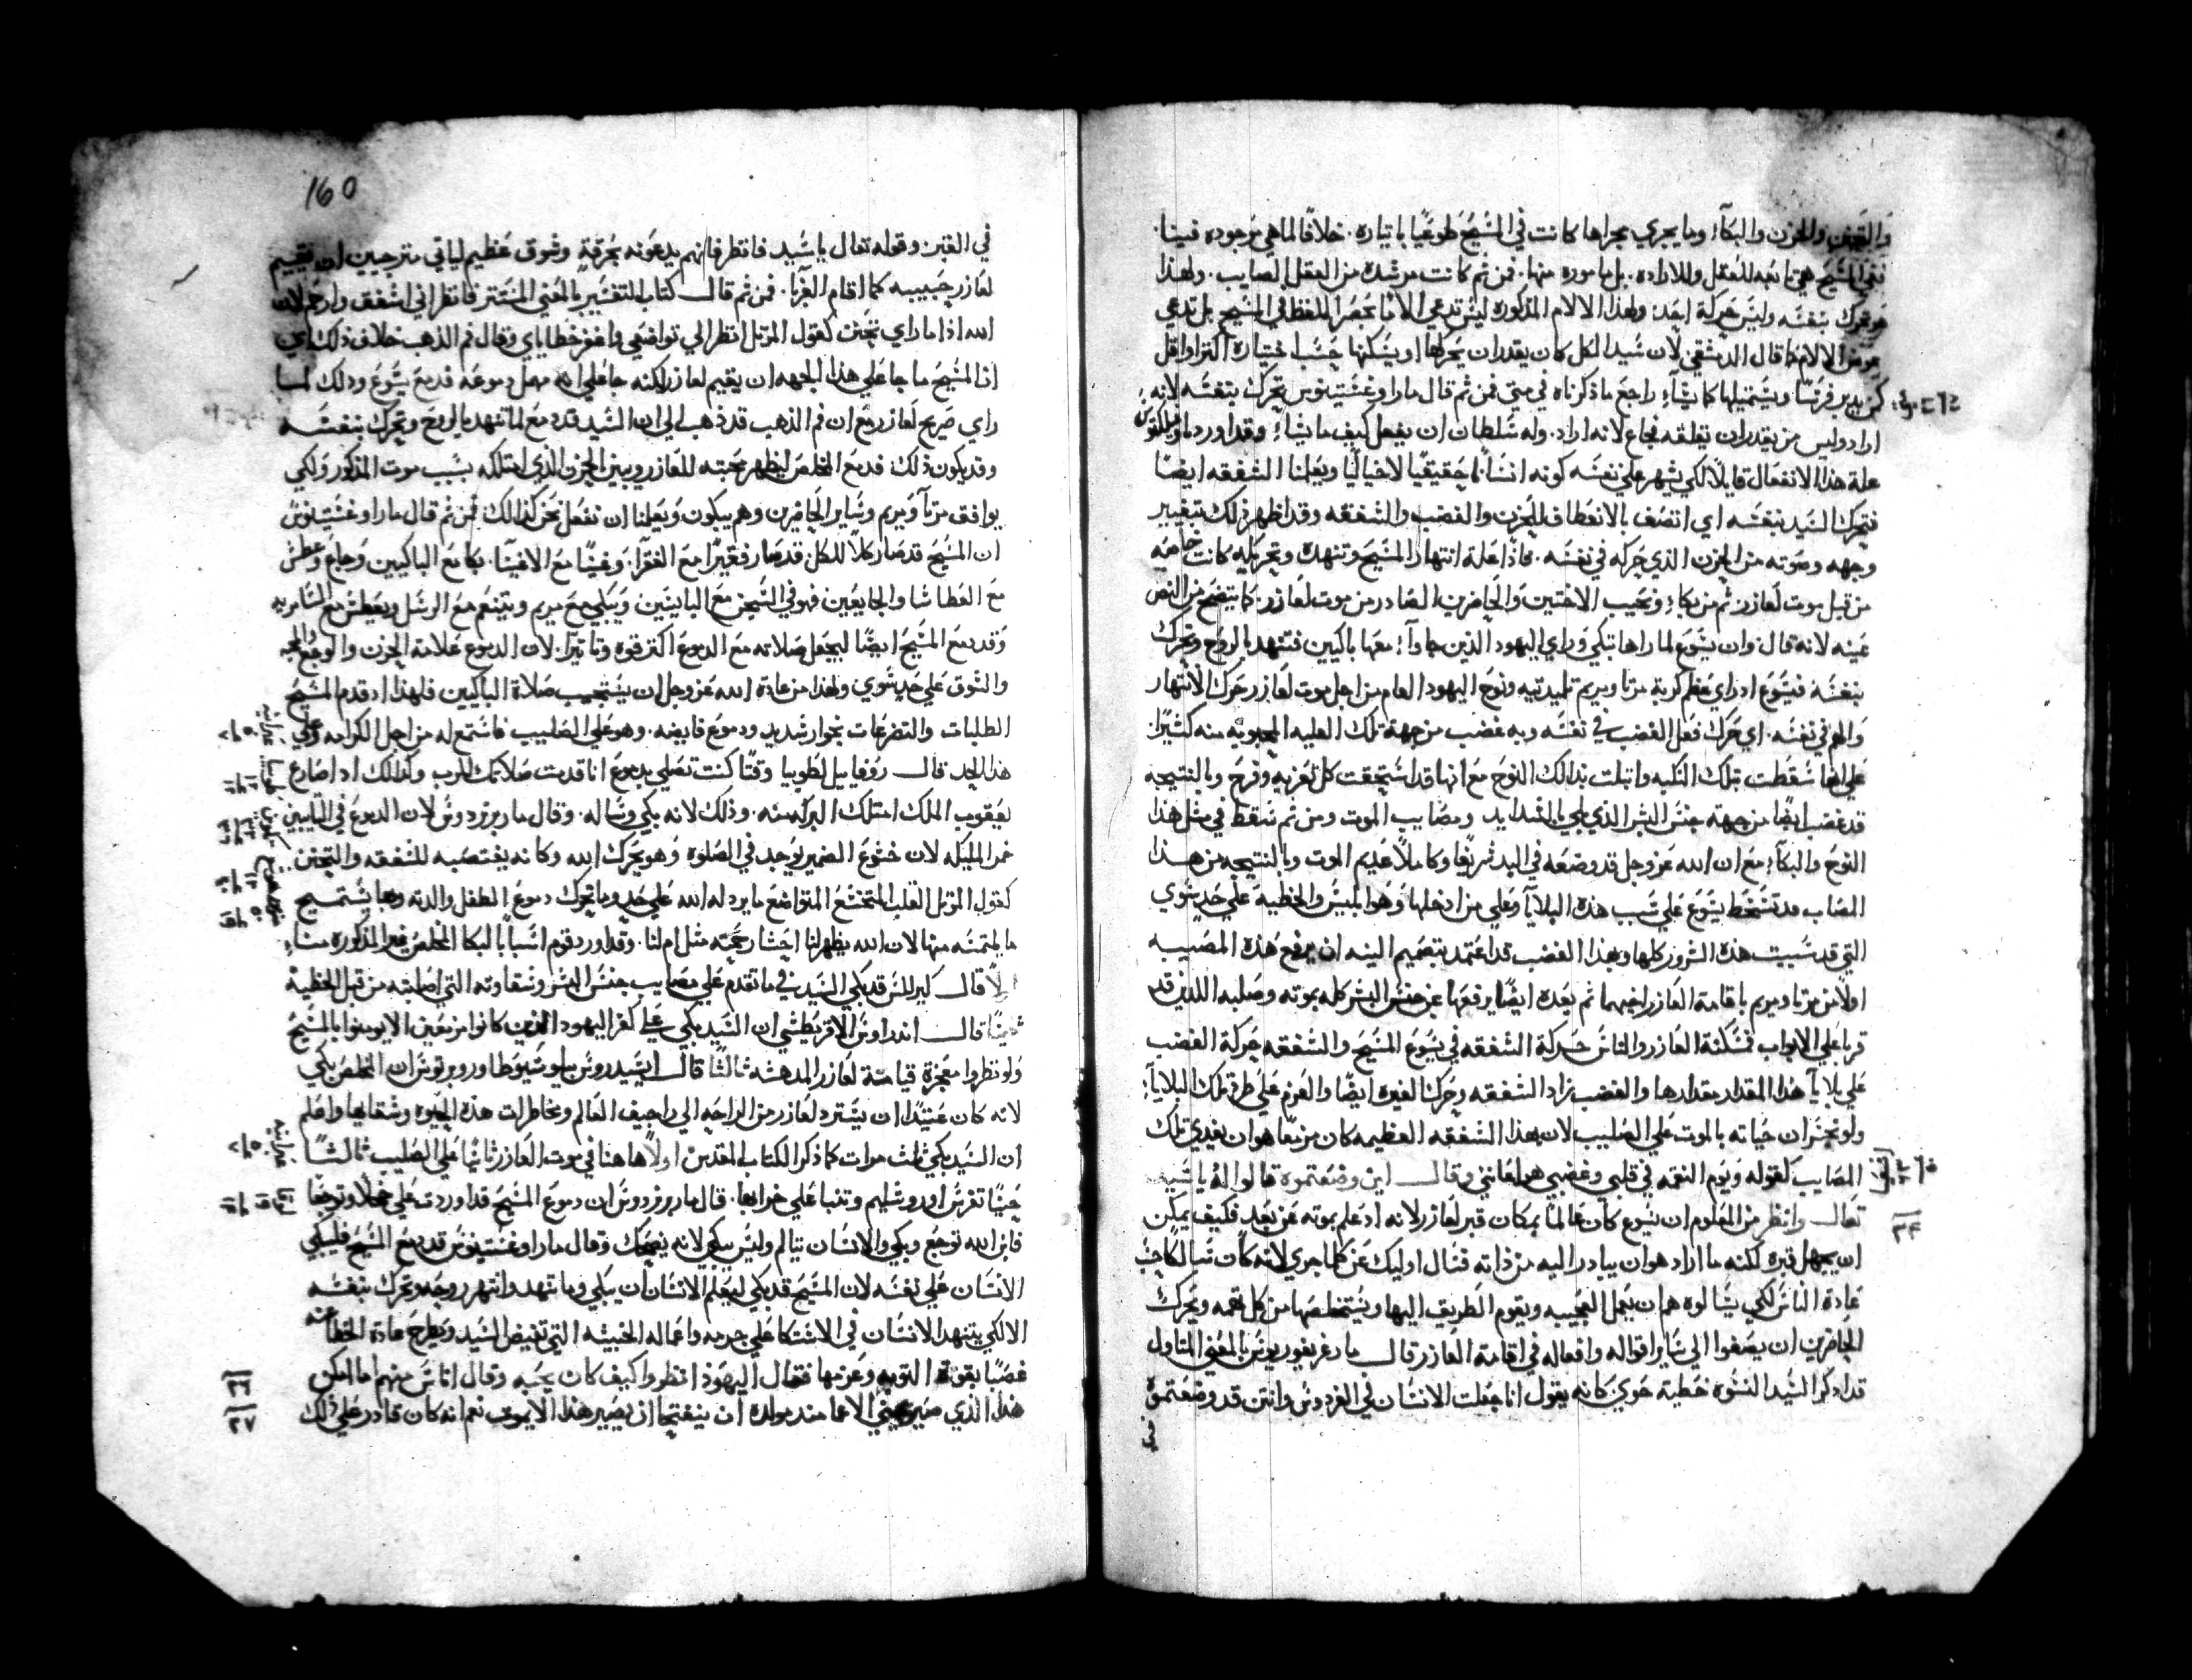 والغضب والحزن والبكآء وما يجري مجراها كانت في المسيح طوعيا باختياره. خلافا لما هي موجوده فينا.
ففي المسيح هي تابعه للعقل وللاراده. بل مأموره منها. فمن ثم كانت مرشده من العقل الصايب. ولهذا
هو تحرك بنفسه وليس حركه احد: ولهذا الالام المذكوره ليس تدعي الاما بحصر اللفظ في المسيح بل تدعي
عوض الالام كما قال الدمشقي لان سيد الكل كان يقدر ان يحركها او يسكنها حسب اختياره اكثر او اقل
كمن يدبر فرسا ويستميلها كما يشآء راجع ما ذكرناه في متي فمن ثم قال مار اوغسنتينوس تحرك بنفسه لانه
اراد وليس من يقدر ان يقلقه فجاع لانه اراد. وله سلطان ان يفعل كيف ما يشاء وقد اورد
علة هذا الانفعال قايلا لكي يشهر علي نفسه كونه انسانا حقيقيا لا خياليا ويعلمنا الشفقه ايضا
فتحرك السيد بنفسه اي اتصف بالانعطاف للحزن والغضب والشفقه وقد اظهر ذلك بتغيير
وجهه وصوته من الحزن الذي حركه في نفسه. فاذا علة انتهار المسيح وتنهده وتحريكه كانت خاصيه
من قبل موت لعازر: ثم من بكاء ونحيب الاختين والحاضرين الصادر من موت لعازر: كما يتضح من النص
عينه لانه قال وان يسوع لما راها تبكي وراي اليهود الذين جاوآ معها باكيين فتنهد بالروح وتحرك
بنفسه فيسوع اذ راي عظم كربة مرتا ومريم تلميذتيه ونوح اليهود العام من اجل موت لعازر حرك الانتهار
والهم في نفسه. اي حرك فعل الغضب في نفسه وبه غضب من جهة تلك العليه المحبوبه منه كثيرا
علي انها سقطت بتلك النكبه وابتلت بذلك النوح مع انها قد استحقت كل تعزيه وفرح وبالنتيجه
قد غضب ايضا من جهة جنس البشر الذي بلي بالشدايد ومصايب الموت ومن ثم سقط في مثل هذا
النوح والبكآء مع ان الله عز وجل قد وضعه في البد شريفا وكاملا عديم الموت وبالنتيجه من هذا
المصاب قد تسخط يسوع علي سبب هذه البلايآ وعلي من ادخلها وهو ابليس والخطيه علي حد سوي
التي قد سببت هذه الشرور كلها وبهذا الغضب قد اعتمد بتصميم النيه ان يرفع هذه المصيبه
اولا من مرتا ومريم باقامة العازر اخيهما ثم بعده ايضا يرفعها عن جنس البشر كله بموته وصلبه اللذين قد
قربا علي الابواب فمسكنة العازر والناس حركة الشفقه في يسوع المسيح والشفقه حركة الغضب
علي بلايآ هذا المقدار مقدارها والغضب زاد الشفقه وحركنا لغيره ايضا والعزم علي طرد تلك البلايآ:
ولو بخسران حياته بالموت علي الصليب لان بهذا الشفقه العظيمه كان مزمعا هو ان يفدي تلك
المصايب كقوله ويوم النقمه في قلبي وغضبي هو اعانني وقال اين وضعتموه قالوا له يا سيد
تعال وانظر من المعلوم ان يسوع كان عالما بمكان قبر لعازر لانه اذ علم بموته عن بعد فكيف يمكن
ان يجهل قبره لكنه ما اراد هو ان يبادر اليه من ذاته فسال اوليك عن كلما جري لانه كان
عادة الناس لكي يسالوه هم ان يعمل العجيبه ويقوم الطريق اليها ويستخلصها من كل تهمه ويحرك
الحاضرين ان يصغوا الي ساير اقواله وافعاله في اقامة العازر قال مار غريغوريوس بالمعني المتاول
قد اذكر السيد النسوه خطية حوي كانه يقول انا جعلت الانسان في الفردوس وانتن قد وضعتموه
في القبر وقوله تعال يا سيد فانظر فانهم يدعونه بحرقة وشوق عظيم لياتي مترجيين انه يقيم
لعازر حبيبه كما اقام الغربا. فمن ثم قال كتاب التفسير بالمعني المستتر فانظر اني اشفق وارحم لان
الله اذا ما راي تحنن كقول المرتل انظر الي تواضعي واغفر خطاياي وقال فم الذهب خلاف ذلك اي
ان المسيح ما جا علي هذا الجهه ان يقيم لعازر لكنه جا علي انه مهمل دموعه فدمع يسوع وذلك لما
راي ضريح لعازر مع ان فم الذهب قد ذهب الي ان السيد قد دمع لما تنهد بالروح وتحرك بنفسه
وقد يكون ذلك فدمع المخلص ليظهر محبته للعازر ويبين الحزن الذي امتلكه بسبب موت المذكور ولكي
يوافق مرتآ ومريم وساير الحاضرين وهم يبكون ويعلمنا ان نفعل نحن كذلك فمن ثم قال مار اوغسنتينوس
ان المسيح قد صار كلا للكل قد صار فقيرا مع الفقرآ. وغنيا مع الاغنيا. بكا مع الباكيين وجاع وعطش
مع العطاشا والجايعين فهو في السجن مع البايسين ويبكي مع مريم ويتنعم مع الرسل ويعطش مع السامريه
وقد دمع المسيح ايضا ليجعل صلاته مع الدموع اكثر قوه وتاثيرا. لان الدموع علامة الحزن والوجع والمحبه
والشوق علي حد سوي ولهذا من عادة الله عز وجل ان يستجيب صلاة الباكيين فلهذا اذ قدم المسيح
الطلبات والتضرعات بخوار شديد ودموع فايضه. وهو علي الصليب فاستمع له من اجل الكرامه وعلي
هذا الحد قال روفاييل لطوبيا وقتا كنت تصلي بدموع انا قدمت صلاتك للرب وكذلك اذ صارع
يعقوب الملك امتلك البركه منه. وذلك لانه بكي وساله. وقال مار برنردوس لان الدموع في التايبين
خمر المليكه لان خشوع الضمير يوجد في الصلوه وهو يحرك الله وكانه يغتصبه للشفقه والتحنن
كقول المرتل القلب المتخشع المتواضع ما يرذله الله علي حد وما تحرك دموع الطفل والدته وبها يستميح
ما يلتمسه منها لان الله يظهر لنا احشا رحمته مثل ام لنا. وقد اورد قوم اسبابا لبكا المخلص غير المذكوره منها
اولا قال كيرللس قد بكي السيد في ما تقدم علي مصايب جنس البشر وشقاوته التي اصابته من قبل الخطية
ثانيا قال اندراوس الاقريطشي ان السيد بكي علي كفر اليهود الذين كانوا مزمعين الا يومنوا بالمسيح
ولو نظروا معجزة قيامة لعازر المدهشه ثالثا قال ايسيدروس بيلوسيوطا وروبرتوس ان المخلص بكي
لانه كان عتيدا ان يسترد لعازر من الراحه الي اراجيف العالم ومخاطرات هذه الحيوه وشقايها واعلم
ان السيد بكي ثلث مرات كما ذكر الكتاب المقدس اولا ها هنا في موت العازر ثانيا علي الصليب ثالثا
حينا تفرس اورشليم وتنبا علي خرابها. قال مار برنردوس ان دموع المسيح قد اوردت علي خجلا وتوجعا
فابن الله توجع وبكي والانسان يتالم وليس يبكي لانه يضحك وقال مار اوغسنتينوس قد دمع المسيح فليبكي
الانسان علي نفسه لان المسيح قد بكي ليعلم الانسان ان يبكي وما تنهد وانتهر روحه وتحرك بنفسه
الا لكي يتنهد الانسان في الاشتكا علي جرمه واعماله الخبيثه التي تغيض السيد ويطرح عادة الخطا عنه
غصبا بقوة التوبه وعزمها فقال اليهوذ انظروا كيف كان يحبه وقال اناس منهم اما امكن
هذا الذي صير عيني الاعما منذ مولده ان ينفتحا ان يصير هذا الا يموت نعم انه كان قادر علي ذلك
160